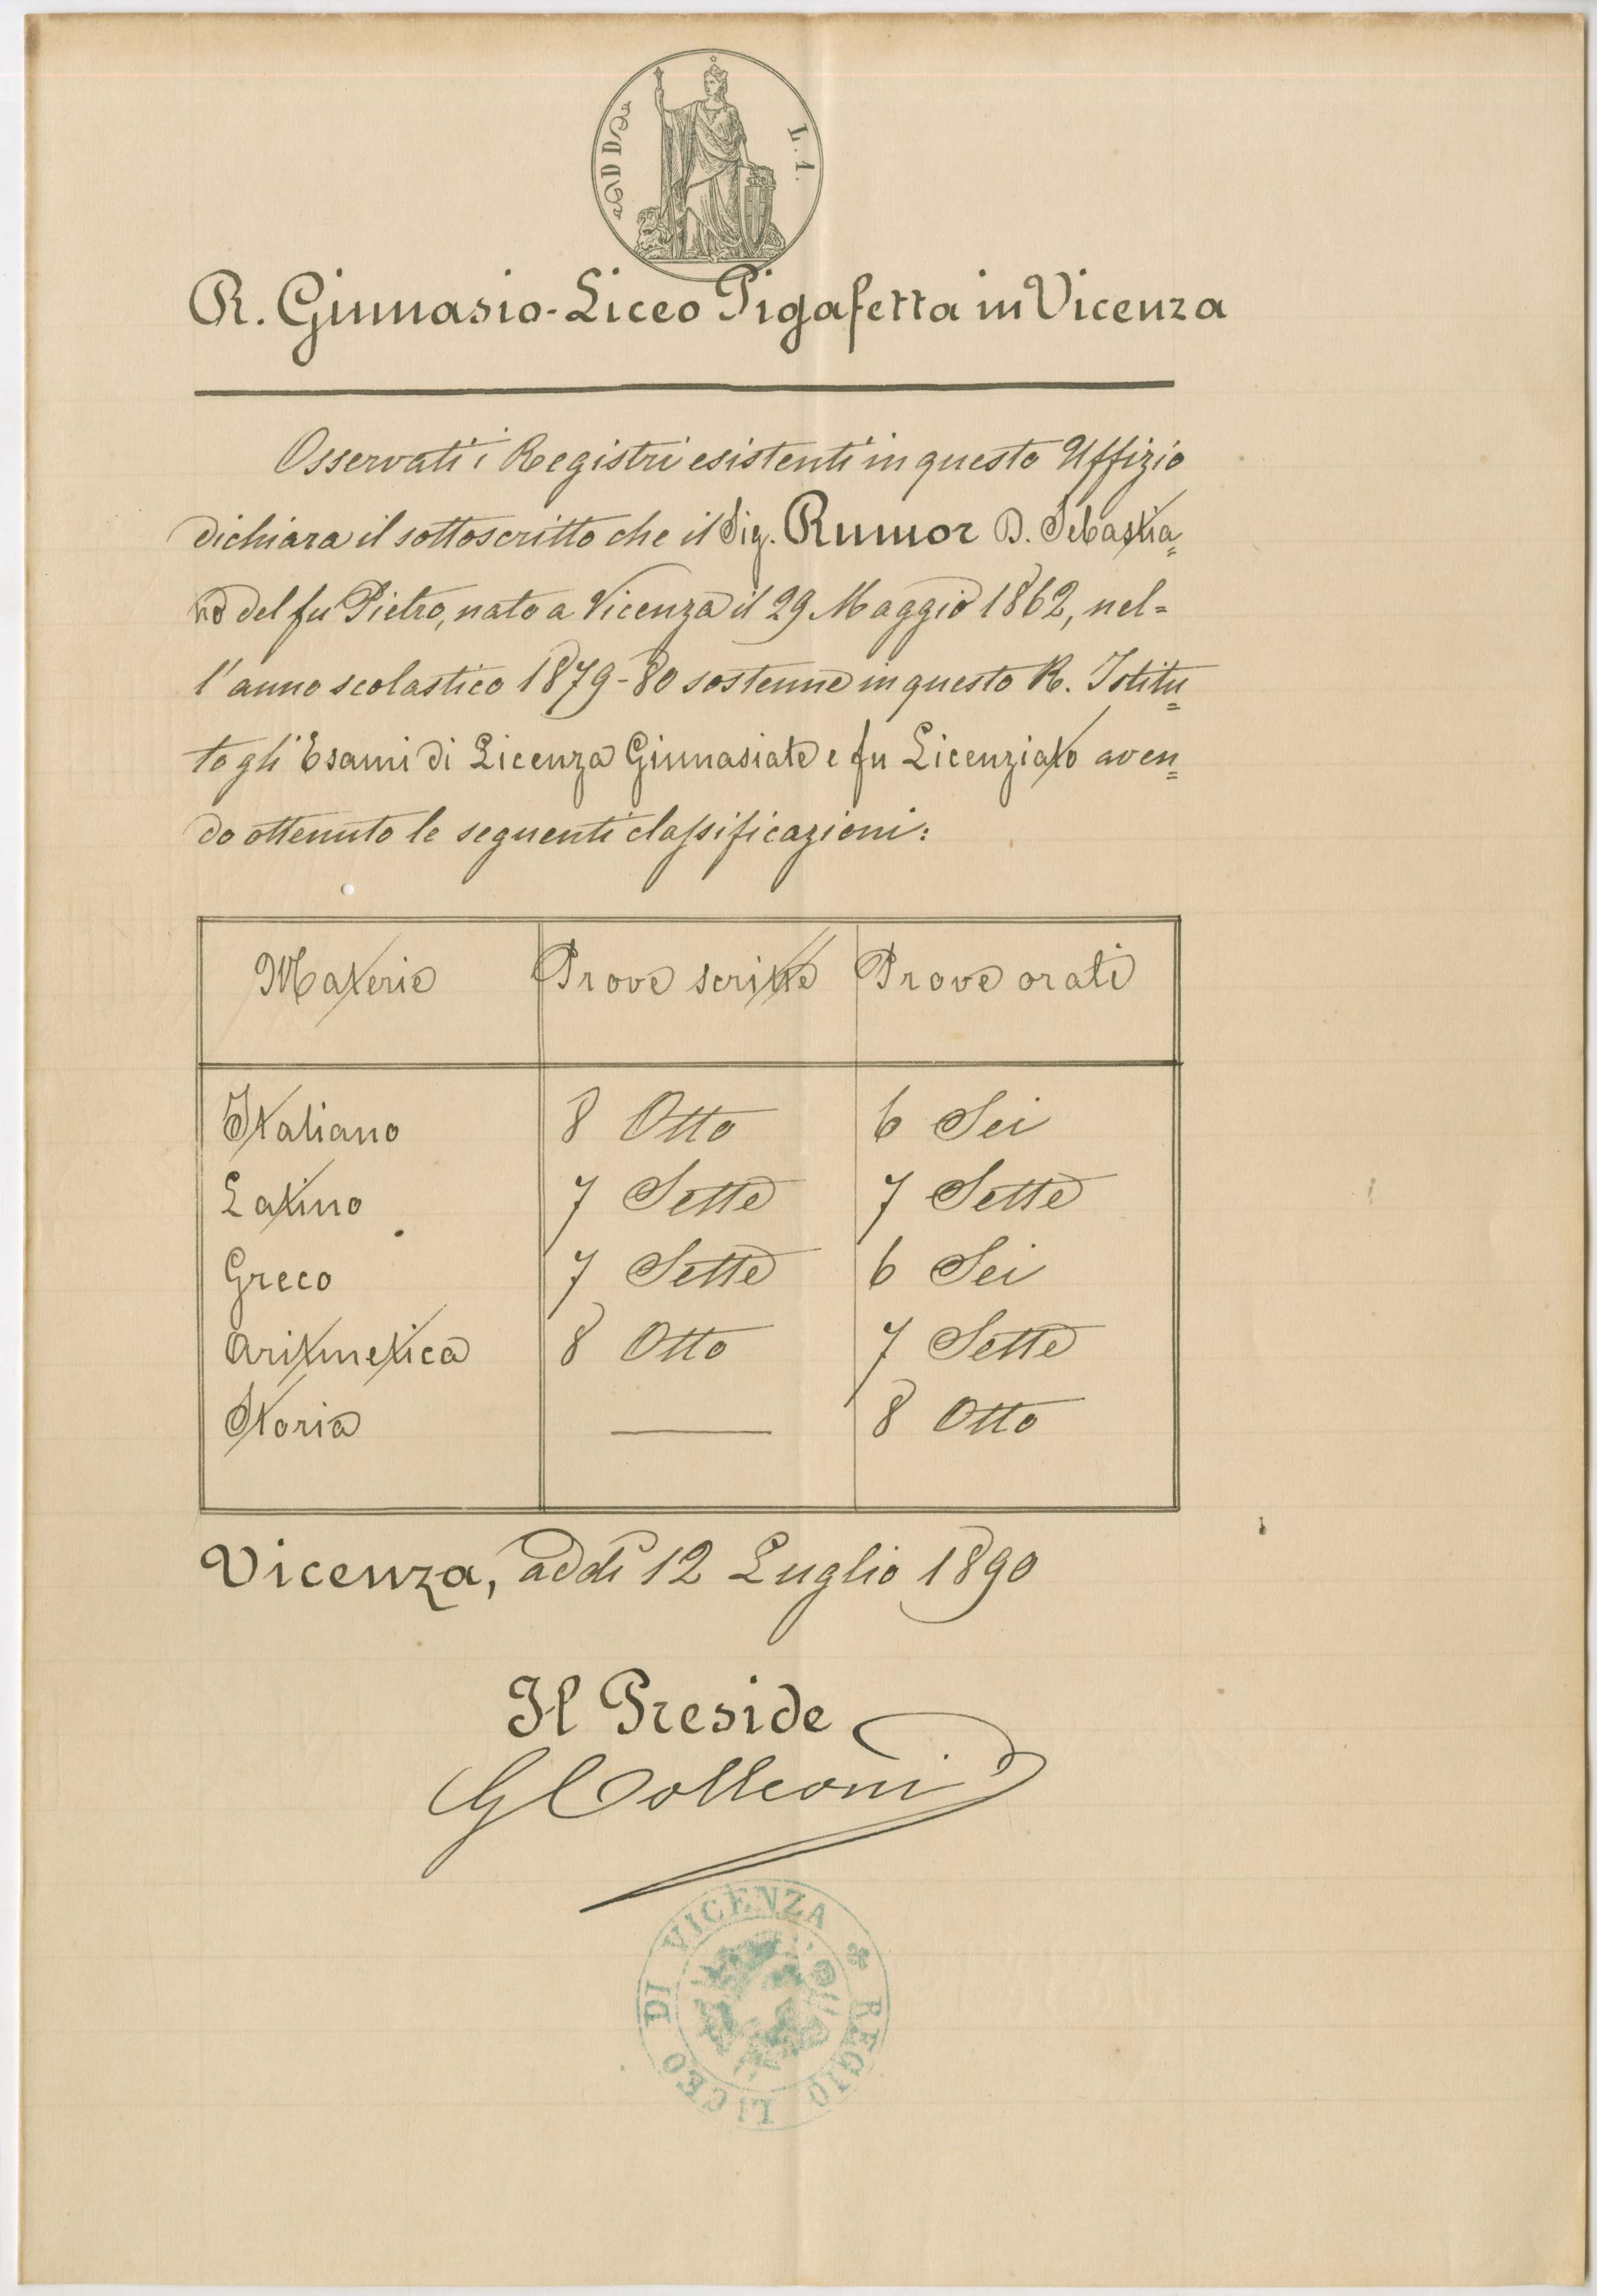 L. 1.
R. Ginnasio-Liceo Pigafetta in Vicenza
Osservati i Registri esistenti in questo Uffizio
dichiara il sottoscritto che il Sig. Rumor D. Sebastia=
no del fu Pietro, nato a Vicenza il 29 Maggio 1862, nel=
l'anno scolastico 1879-80 sostenne in questo R. Istitu=
to gli Esami di Licenza Ginnasiale e fu Licenziato aven=
do ottenuto le seguenti classificazioni:
Materie Prove scritte Prove orali
Italiano 8 Otto 6 Sei
Latino 7 Sette 7 Sette
Greco 7 Sette 6 Sei
Aritmetica 8 Otto 7 Sette
Storia — 8 Otto
Vicenza, addì 12 Luglio 1890
Il Preside
G Colleoni
REGIO LICEO DI VICENZA